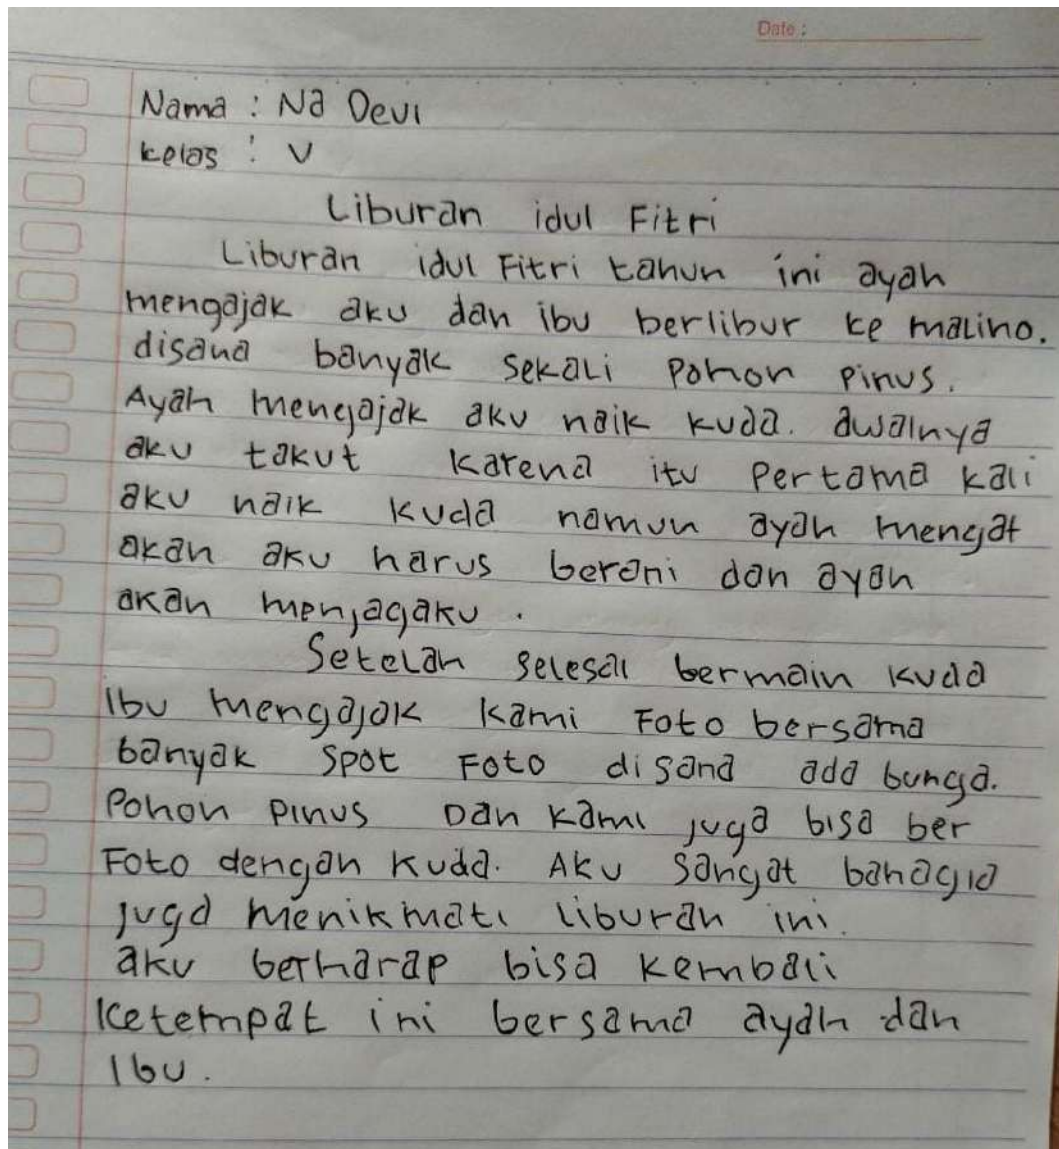 Date :
Nama : Na Devi
kelas : V
Liburan idul Fitri
Liburan idul Fitri tahun ini ayah
mengajak aku dan ibu berlibur ke malino.
disana banyak sekali pohon pinus.
Ayah mengajak aku naik kuda. awalnya
aku takut karena itu pertama kali
aku naik kuda namun ayah mengat
akan aku harus berani dan ayah
akan menjagaku.
Setelah selesai bermain kuda
ibu mengajak kami Foto bersama
banyak spot Foto disana ada bunga.
Pohon pinus Dan kami juga bisa ber
Foto dengan kuda. Aku sangat bahagia
juga menikmati liburan ini.
aku berharap bisa kembali
ketempat ini bersama ayah dan
ibu.